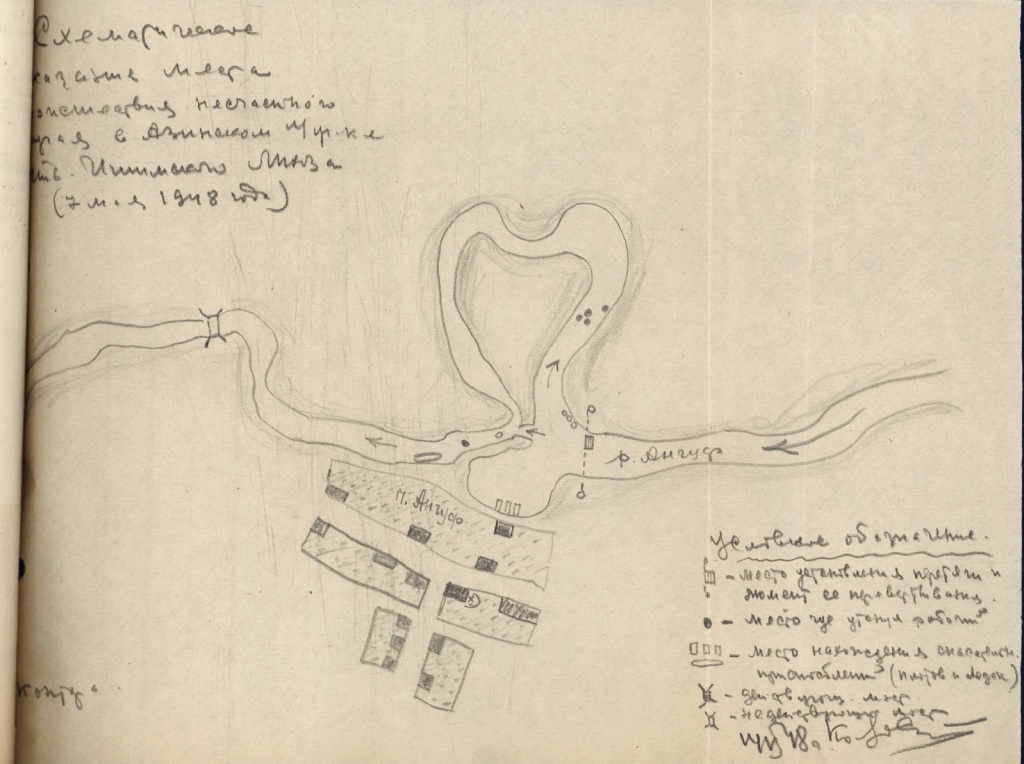 Схематическое
казание места
оисшествия несчастного
учая в Азинском
Ишимского
(7 мая 1948 года)
р. Ангуф
п. Ангуф
Условное обозначение.
- место установления перетяги и
момент ее
- место где утонул рабочий
- место нахождения спасательн.
приспособлений (плотов и лодок)
- действующ. мост.
- недействующий мост
контр